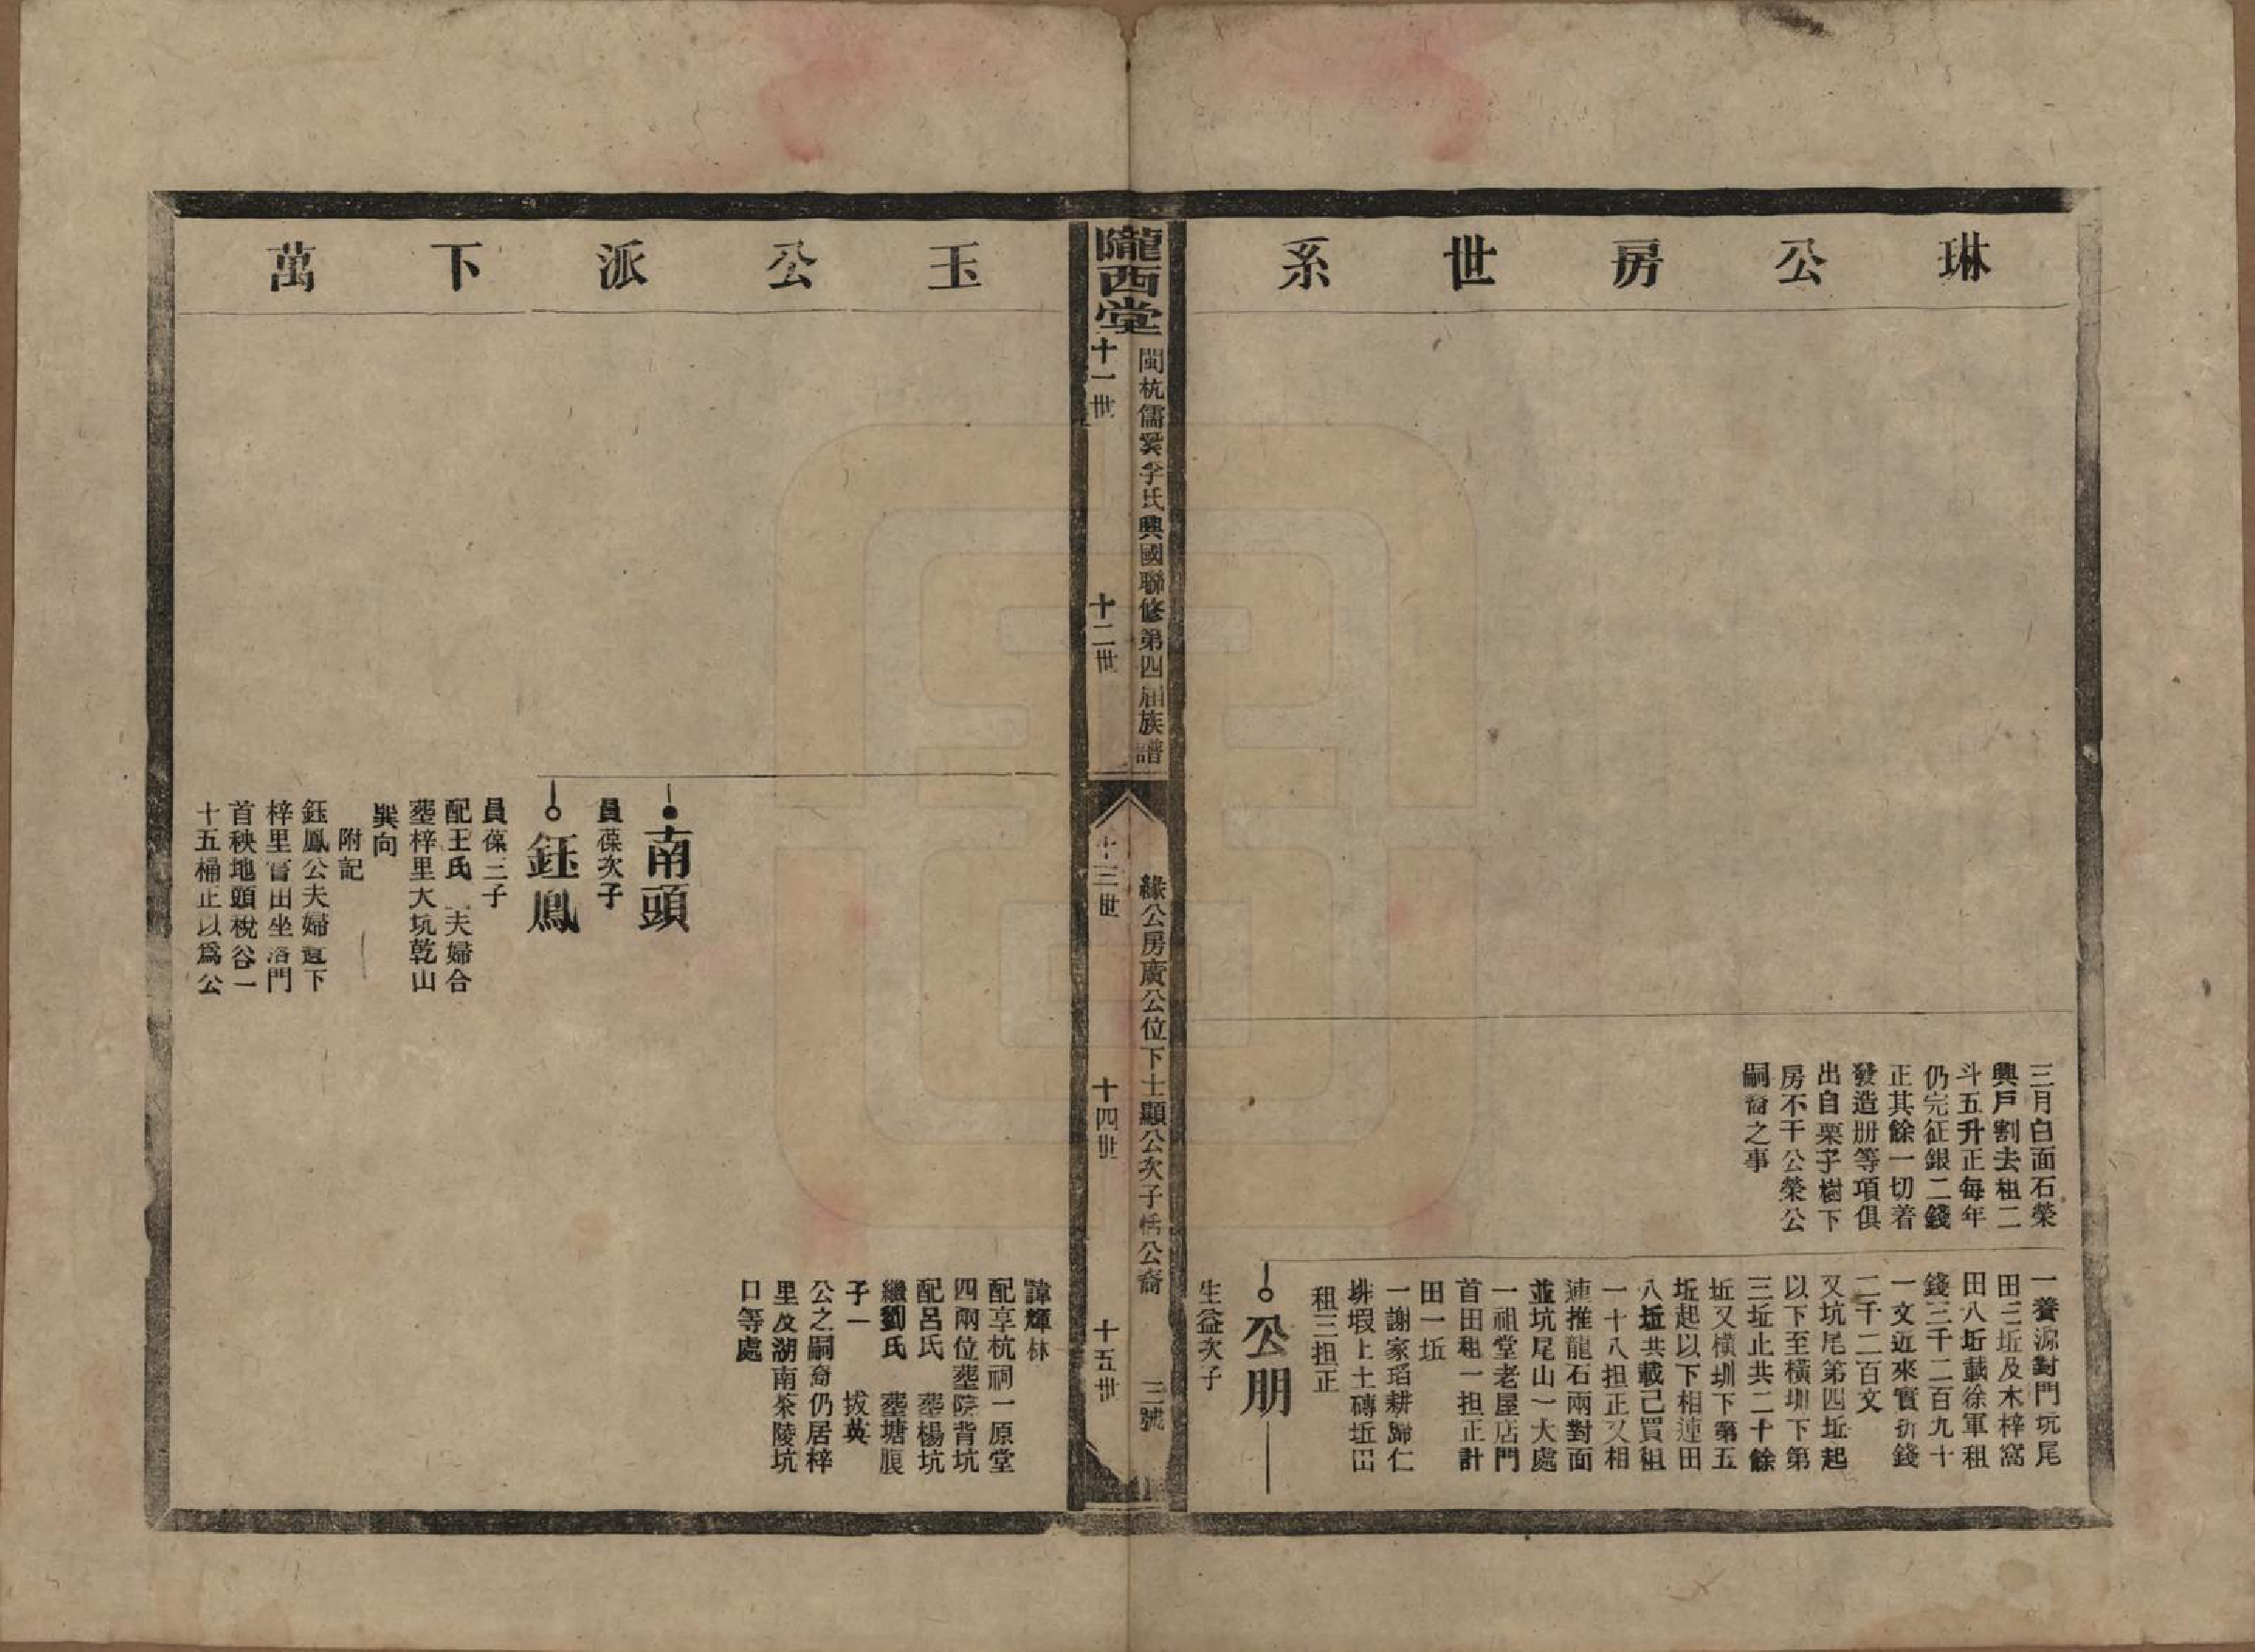 琳公房世系
三月白面石榮
興戶割去租二
斗五升正每年
仍完征銀二錢
正其餘一切着
發造册等項俱
出自栗子樹下
房不干公榮公
嗣裔之事
一養源對門坑尾
田三坵及木梓窩
田八坵載徐軍租
錢三千二百九十
一文近來實折錢
二千二百文
又坑尾第四坵起
以下至橫圳下第
三坵止共二十餘
坵又橫圳下第五
坵起以下相連田
八坵共載己買租
一十八担正又相
連推龍石兩對面
並坑尾山一大處
一祖堂老屋店門
首田租一担正計
田一坵
一謝家瑫耕歸仁
排塅上土磚坵田
租三担正
公朋
生益次子
隴西堂
閩杭儒溪李氏興國聯修第四届族譜
緣公房廣公位下士顯公次子恬公裔
三號
十一世
十二世
十三世
十四世
十五世
玉公派下萬
諱輝林
配享杭祠一原堂
四兩位塟院背坑
配呂氏 塟楊坑
繼劉氏 塟塘腹
子一 拔英
公之嗣裔仍居梓
里及湖南茶陵坑
口等處
南頭
員葆次子
鈺鳳
員葆三子
配王氏 夫婦合
塟梓里大坑乾山
巽向
附記
鈺鳳公夫婦遺下
梓里嘗田坐落門
首秧地頭稅谷一
十五桶正以爲公